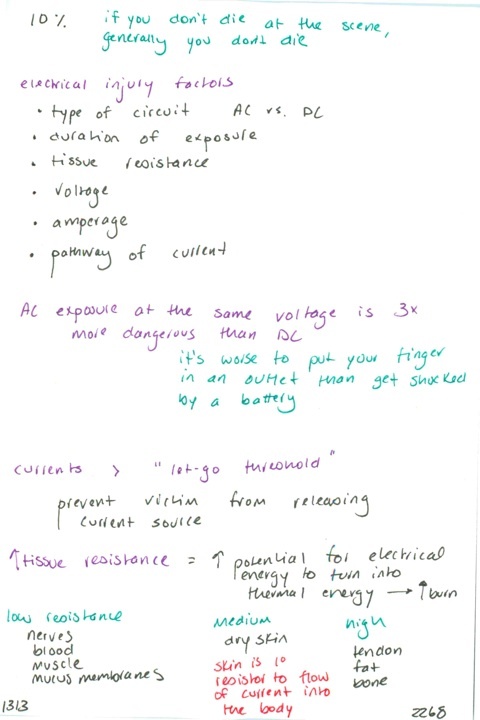 10% if you don't die at the scene,
generally you don't die
electrical injury factors
• type of circuit AC vs. DC
• duration of exposure
• tissue resistance
• voltage
• amperage
• pathway of current
AC exposure at the same voltage is 3x
more dangerous than DC
it's worse to put your finger
in an outlet than get shocked
by a battery
currents > "let-go threshold"
prevent victim from releasing
current source
↑tissue resistance = ↑ potential for electrical
energy to turn into
thermal energy → ↑burn
low resistance
nerves
blood
muscle
mucus membranes
medium
dry skin
skin is 1°
resistor to flow
of current into
the body
high
tendon
fat
bone
1313
2268